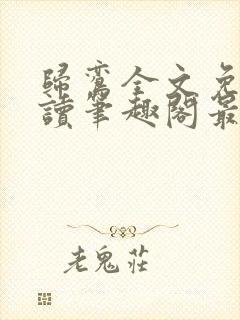 歸鸞全文免
讀筆趣閣最
老鬼莊